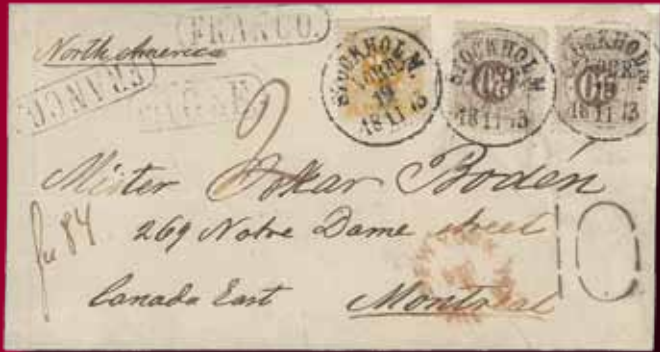 FRANCO.
North America
FRANCO.
STOCKHOLM
18 11 73
STOCKHOLM
18 11 73
STOCKHOLM
18 11 73
2
Mister Oskar Bodén
fr 84
269 Notre Dame street
10
Canada East Montreal